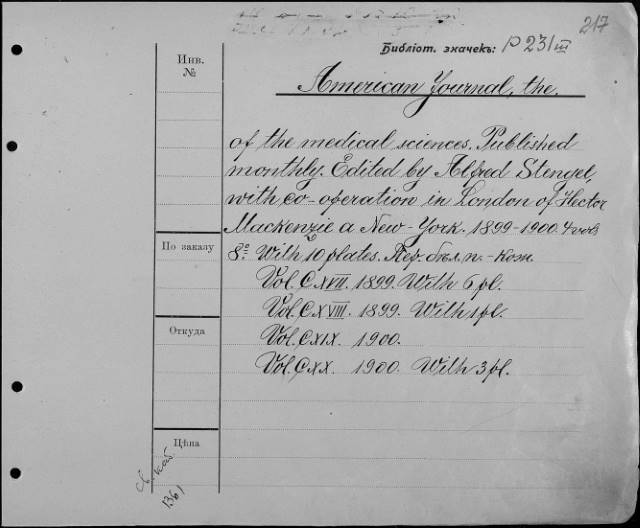 217
Библіот. значекъ: P 231 III
Инв.
№
American Journal, the.
of the medical sciences. Published
monthly. Edited by Alfred Stengel,
with co-operation in London of Hector
Mackenzie a New-York. 1899-1900. 4 vols
8º With 10 plates. Пер. бѣл. п.-кож.
Vol. CXVII. 1899. With 6 pl.
Vol. CXVIII. 1899. With 1 pl.
Vol. CXIX. 1900.
Vol. CXX. 1900. With 3 pl.
По заказу
Откуда
Цѣна
1361